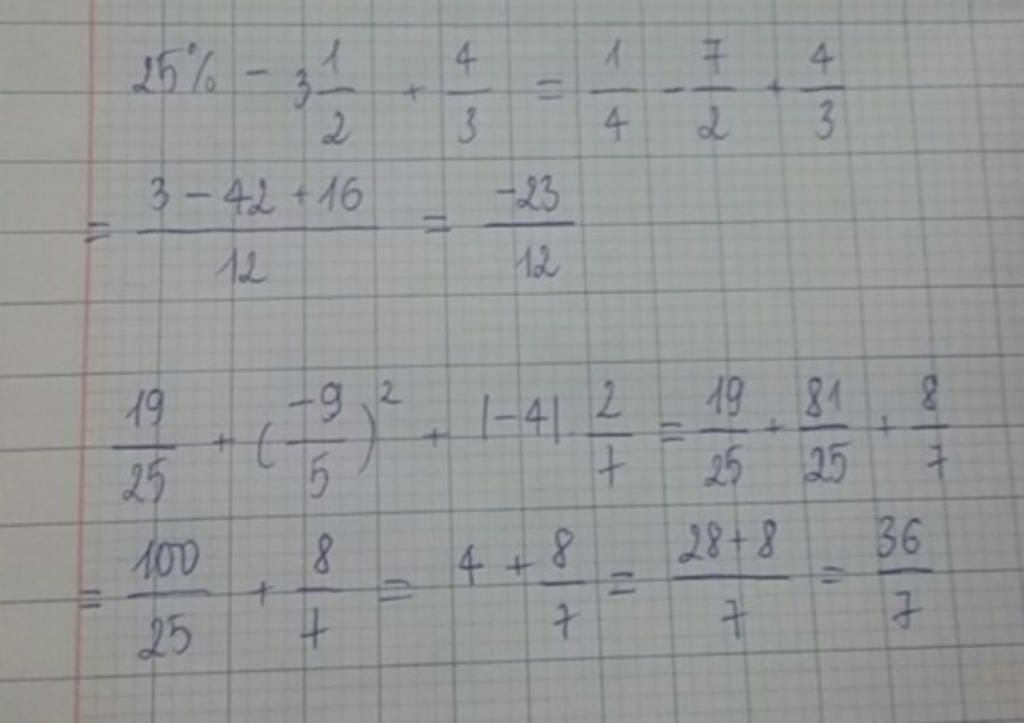 25% - 3 1/2 + 4/3 = 1/4 - 7/2 + 4/3
= (3 - 42 + 16)/12 = -23/12
19/25 + (-9/5)² + |-4| 2/7 = 19/25 + 81/25 + 8/7
= 100/25 + 8/7 = 4 + 8/7 = (28+8)/7 = 36/7